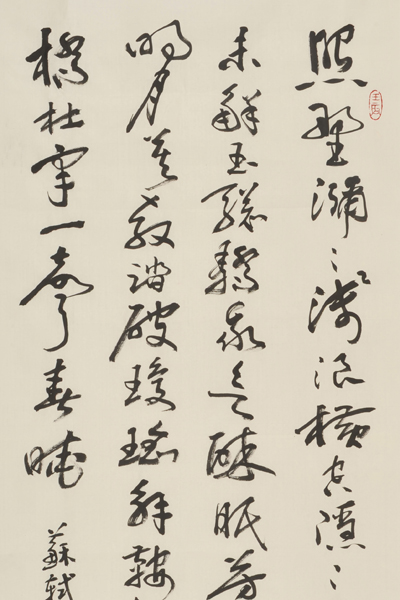 照野瀰〻淺浪橫空隱〻
未解玉驄驕我欲醉眠芳
明月莫教踏破瓊瑤解鞍
橋杜宇一聲春曉
蘇軾